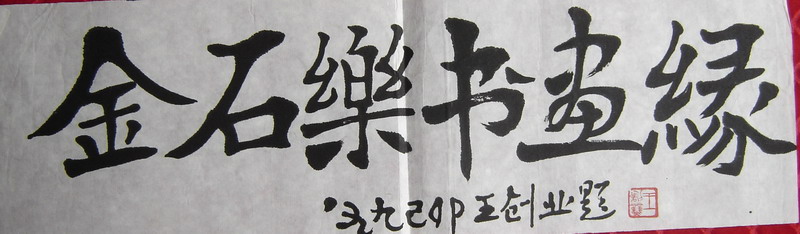 金石樂书画緣
九九己卯王创业题